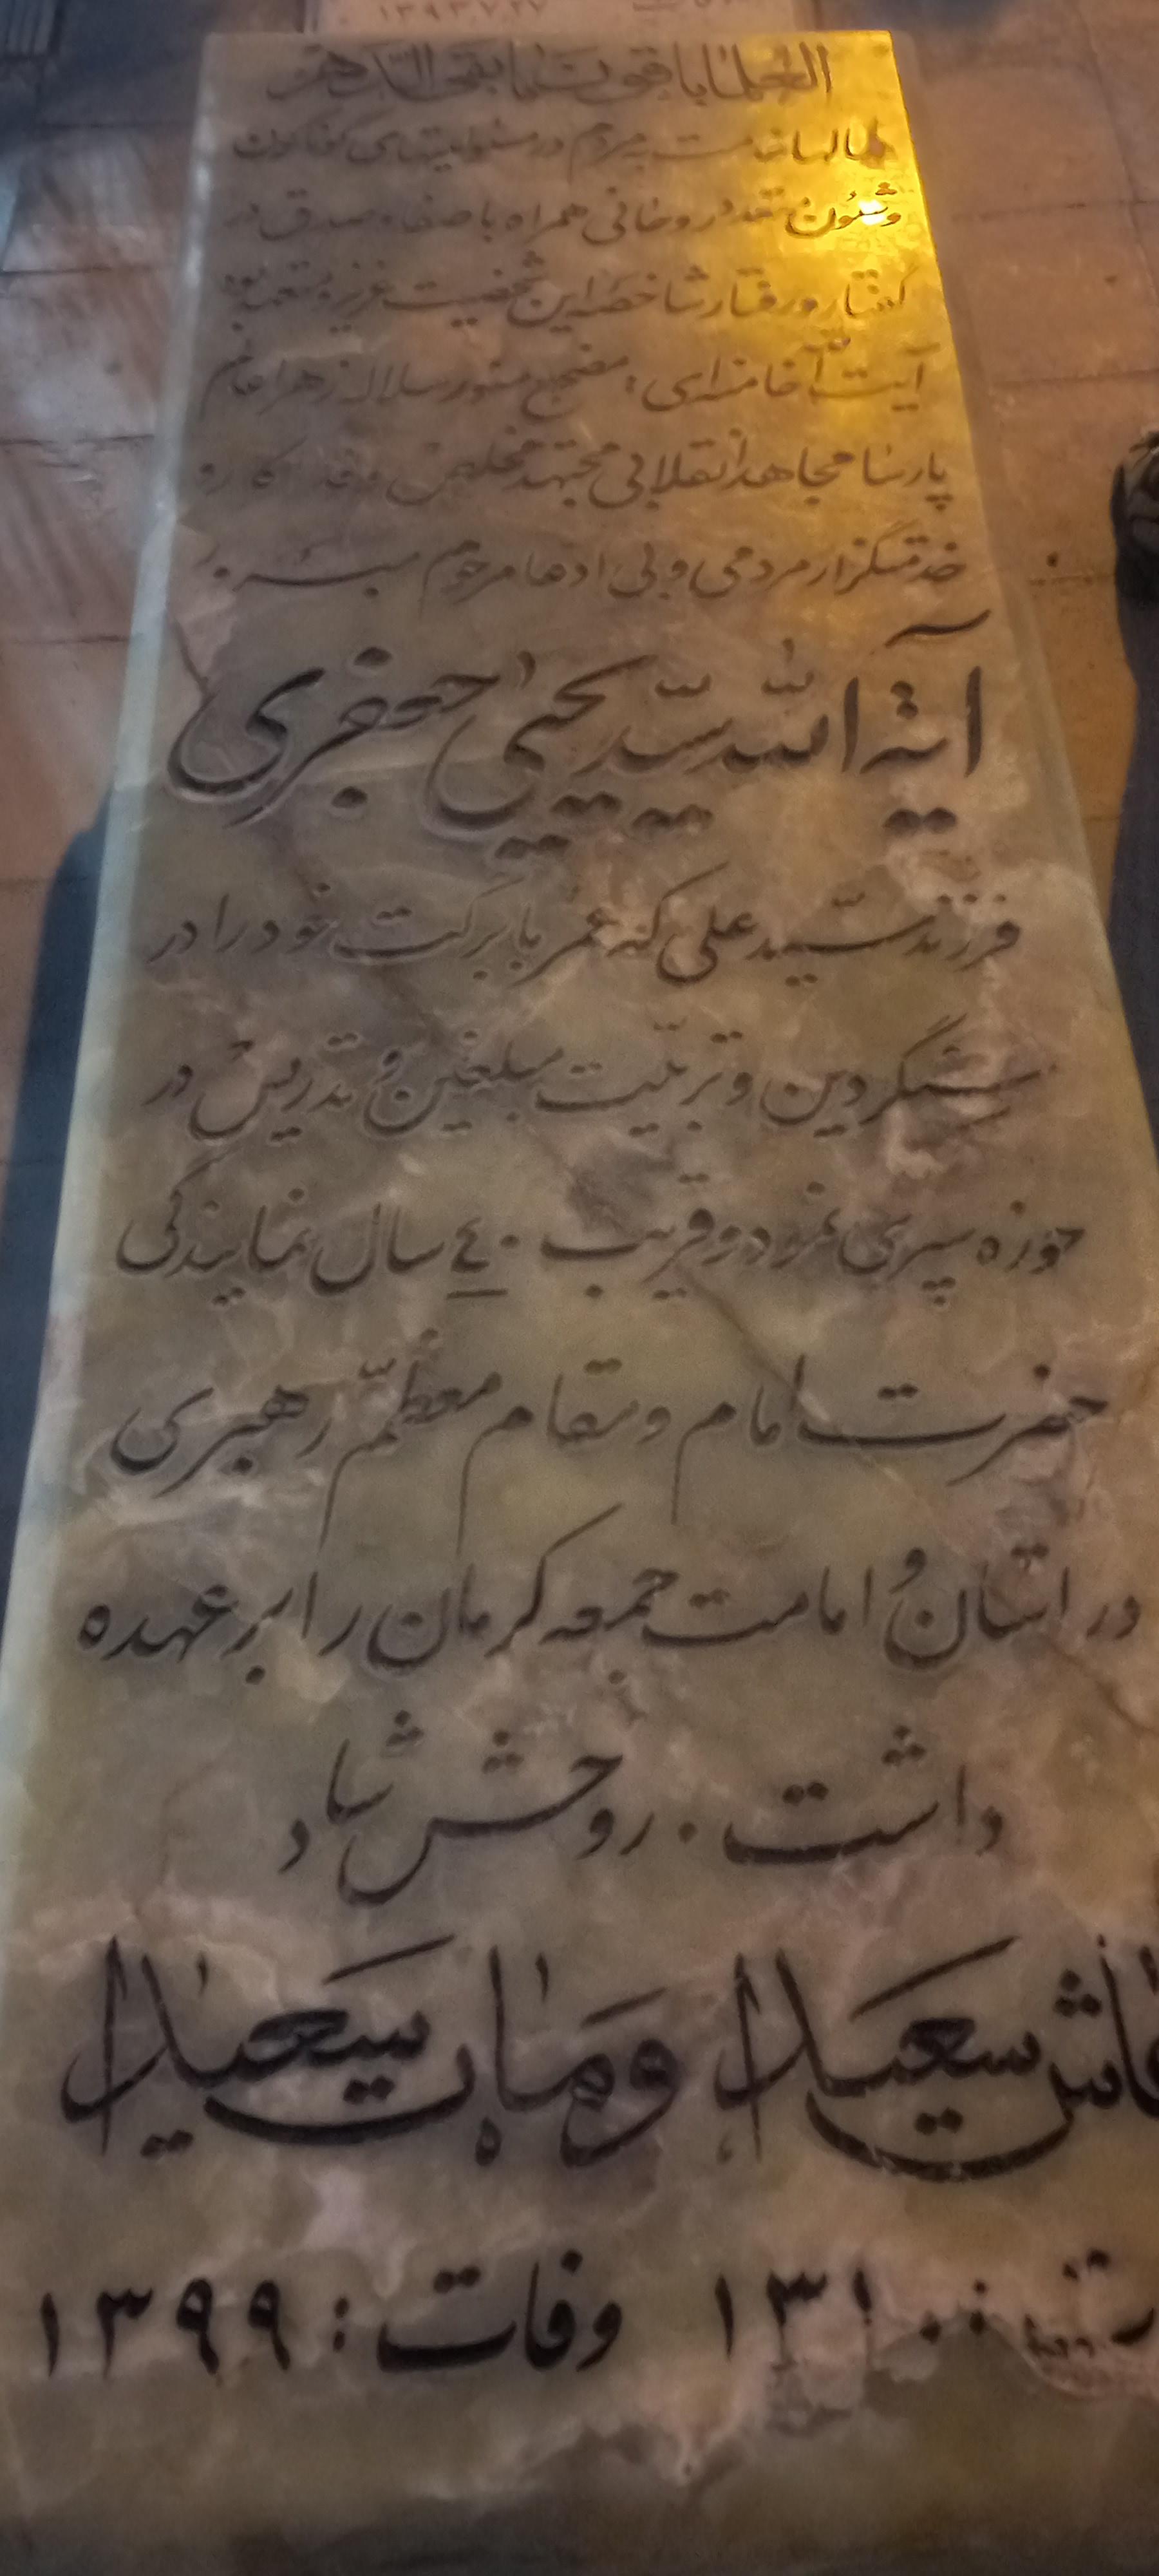 ۱۳۹۳٫۷٫۲۷
العلماء باقون ما بقی الدهر
سالها خدمت بمردم در مسئولیتهای گوناگون
وشئون متعدد روحانی همراه با صفا و صدق در
گفتار و رفتار شاخصه این شخصیت عزیز و معتمد بود
آیت الله خامنه‌ای : مضجع منور سلاله زهرا عالم
پارسا مجاهد انقلابی مجتهد مخلص و فداکار و
خدمتگزار مردمی و بی ادعا مرحوم مبرور
آیة الله سید یحیی جعفری
فرزند سید علی که عمر بابرکت خود را در
سنگر دین و تربیت مبلغین و تدریس در
حوزه سپری نمود و قریب ٤٠ سال نمایندگی
حضرت امام و مقام معظم رهبری
در استان و امامت جمعه کرمان را بر عهده
داشت . روحش شاد
عاش سعیدا ومات سعیدا
۱۳۱۰ وفات : ۱۳۹۹